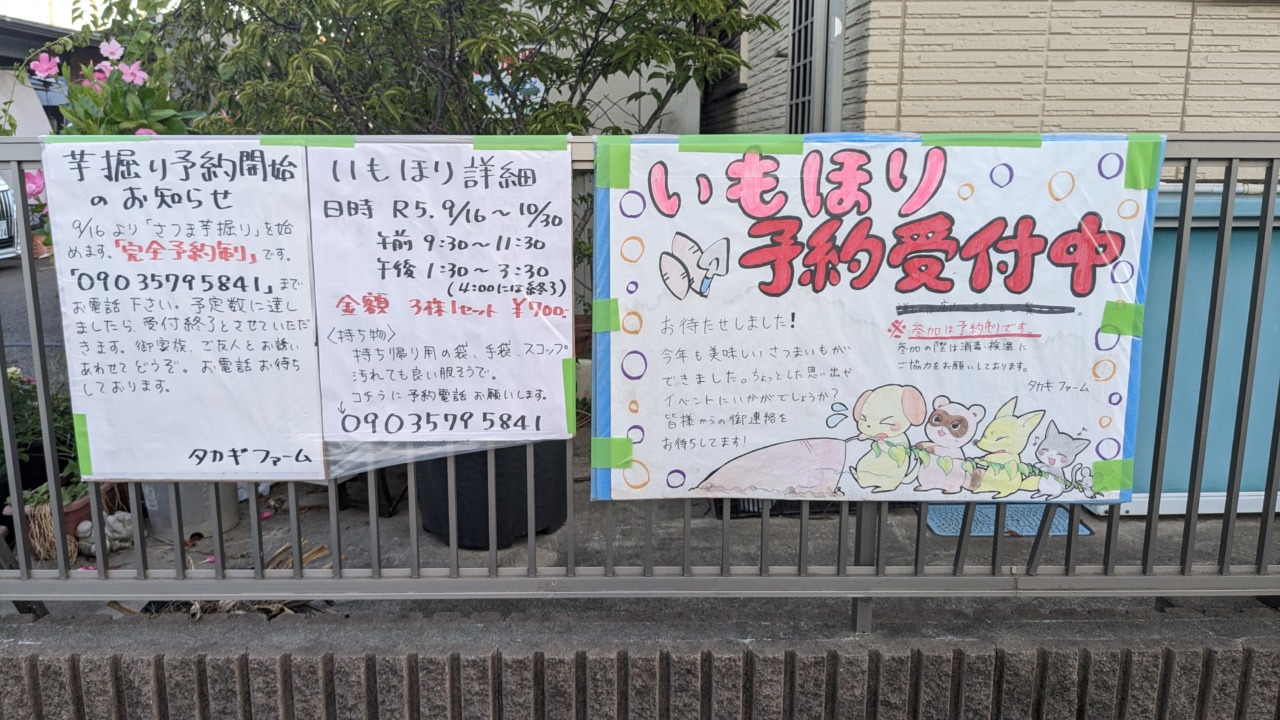 芋掘り予約開始
のお知らせ
9/16より「さつま芋掘り」を始
めます。「完全予約制」です。
「09035795841」まで
お電話下さい。予定数に達し
ましたら受付終了とさせていただ
きます。御家族、ご友人とお誘い
あわせてどうぞ。お電話お待ち
しております。
タカギファーム
いもほり詳細
日時 R5.9/16～10/30
午前 9:30～11:30
午後 1:30～3:30
(4:00には終了)
金額 3株1セット ¥700-
〈持ち物〉
持ち帰り用の袋、手袋、スコップ
汚れても良い服そうで。
コチラに予約電話お願いします。
↓
09035795841
いもほり
予約受付中
お待たせしました!
今年も美味しいさつまいもが
できました。ちょっとした思い出や
イベントにいかがでしょうか?
皆様からの御連絡を
お待ちしてます!
※参加は予約制です
参加の際は消毒・検温に
ご協力をお願いしております。
タカギファーム